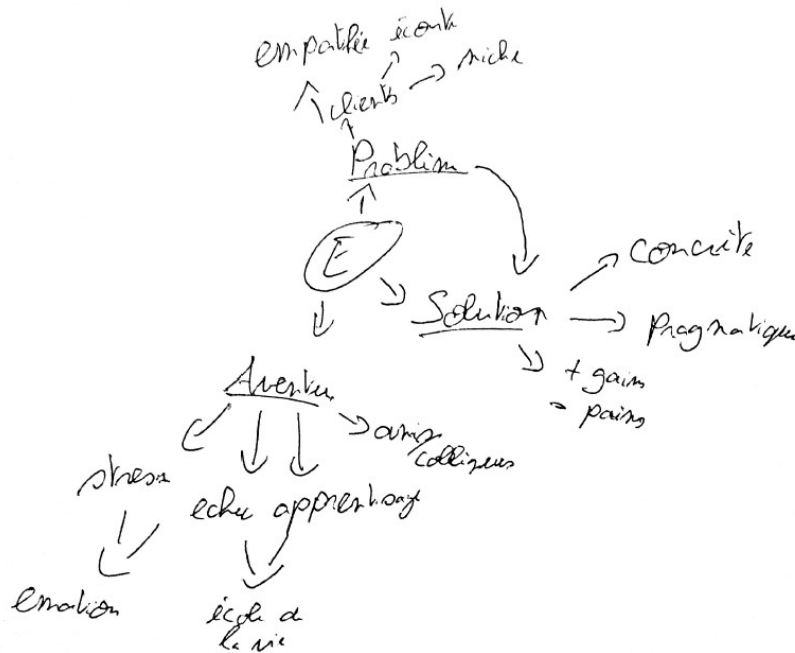 empathie écoute
clients niche
Problem
E
concrète
Solution
Pragmatique
+ gains
- pains
Aventure
amis
collègues
stress
echec apprentissage
emotion
école de
la vie